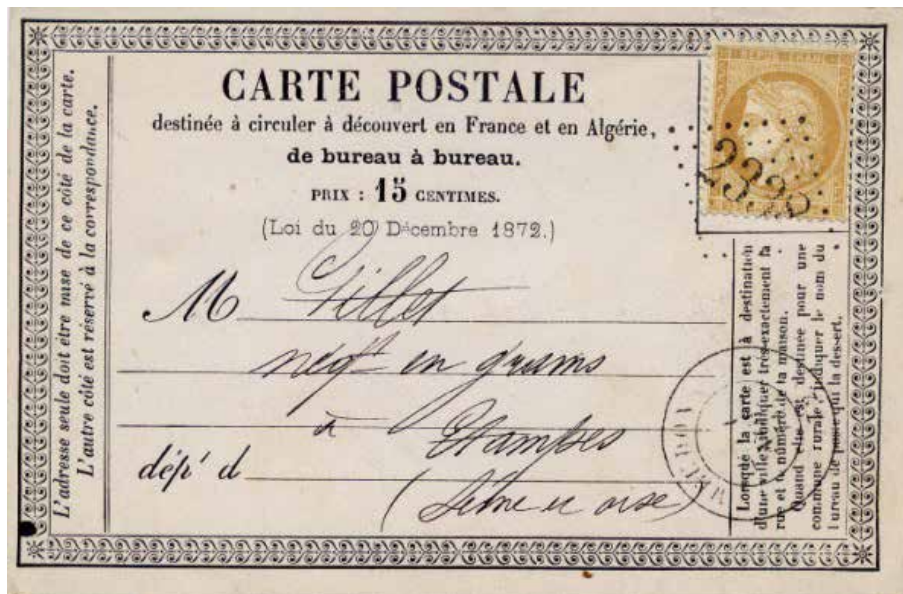 L'adresse seule doit être mise de ce côté de la carte.
L'autre côté est réservé à la correspondance.
CARTE POSTALE
destinée à circuler à découvert en France et en Algérie,
de bureau à bureau.
PRIX : 15 CENTIMES.
(Loi du 20 Décembre 1872.)
REPUB FRANC
M Gillet
négt en grains
à Etampes
dépt d
(Seine et oise)
Lorsque la carte est à destination
d'une ville indiquer très-exactement la
rue et le numéro de la maison.
Quand elle est destinée pour une
commune rurale indiquer le nom du
bureau de poste qui la dessert.